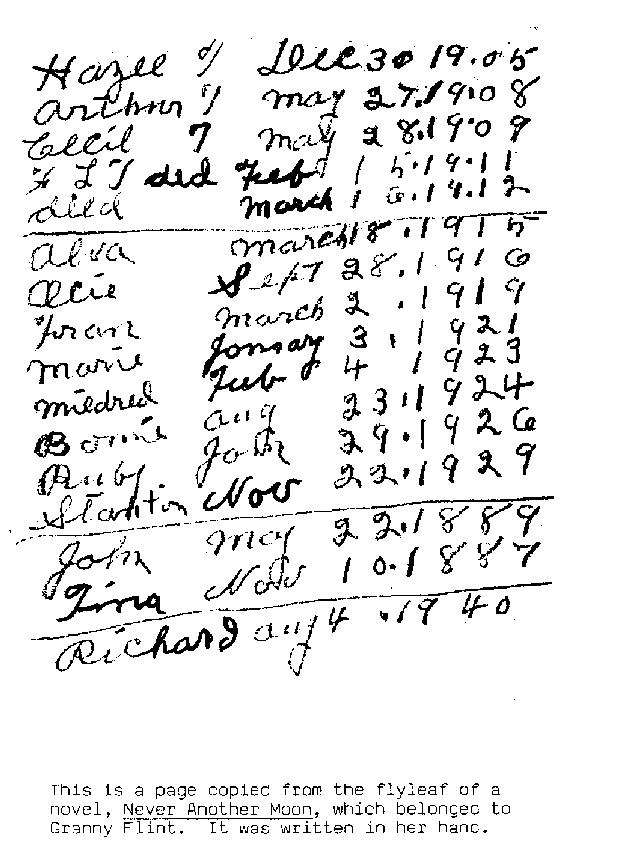 Hazel Dec 30 19.05
Arthur may 27.19.08
Cecil may 28.19.09
died Feb 15.19.11
died march 16.19.12
Alva march 18.1915
Sept 28.1916
Fran march 2.1919
marie Jonsay 3.1921
mildred Feb 4 1923
Bonnie aug 23.1924
Ruby 29.1926
Stanton Nov 22.1929
John may 22.1889
Tina Nov 10.1887
Richard aug 4.1940
This is a page copied from the flyleaf of a
novel, Never Another Moon, which belonged to
Granny Flint. It was written in her hand.